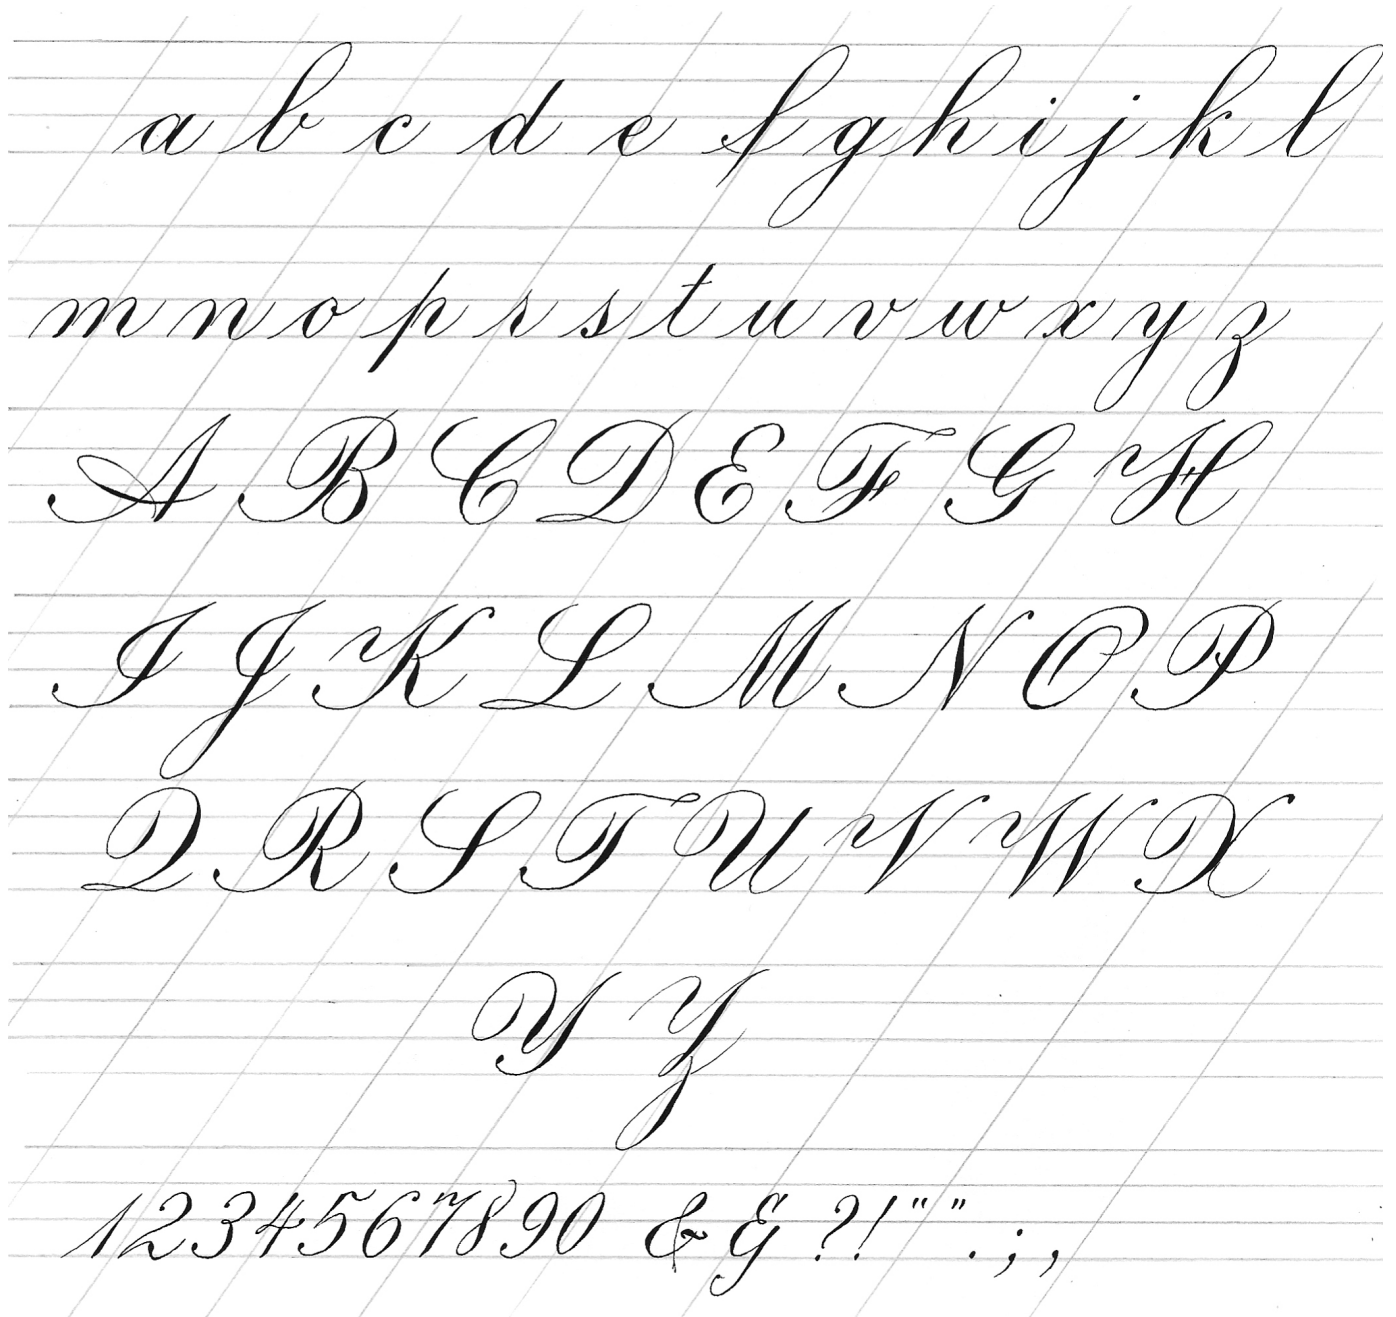 a b c d e f g h i j k l
m n o p r s t u v w x y z
A B C D E F G H
I J K L M N O P
Q R S T U V W X
Y Z
1234567890 & & ?! " " . ; ,